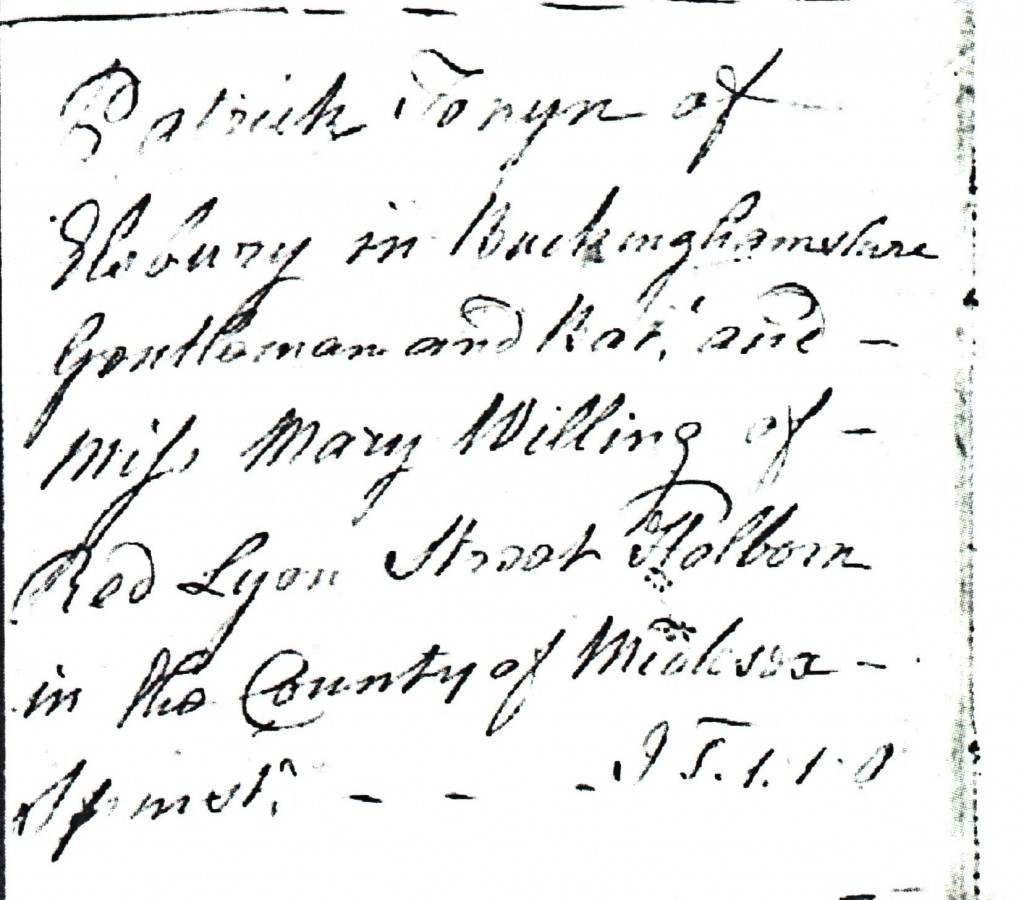 Patrick Tonyn of
Elsbury in Buckinghamshire
Gentleman and Bat.r and —
Miss Mary Willing of —
Red Lyon Street Holborn
in the County of Midlesex —
Spinst.r — — —